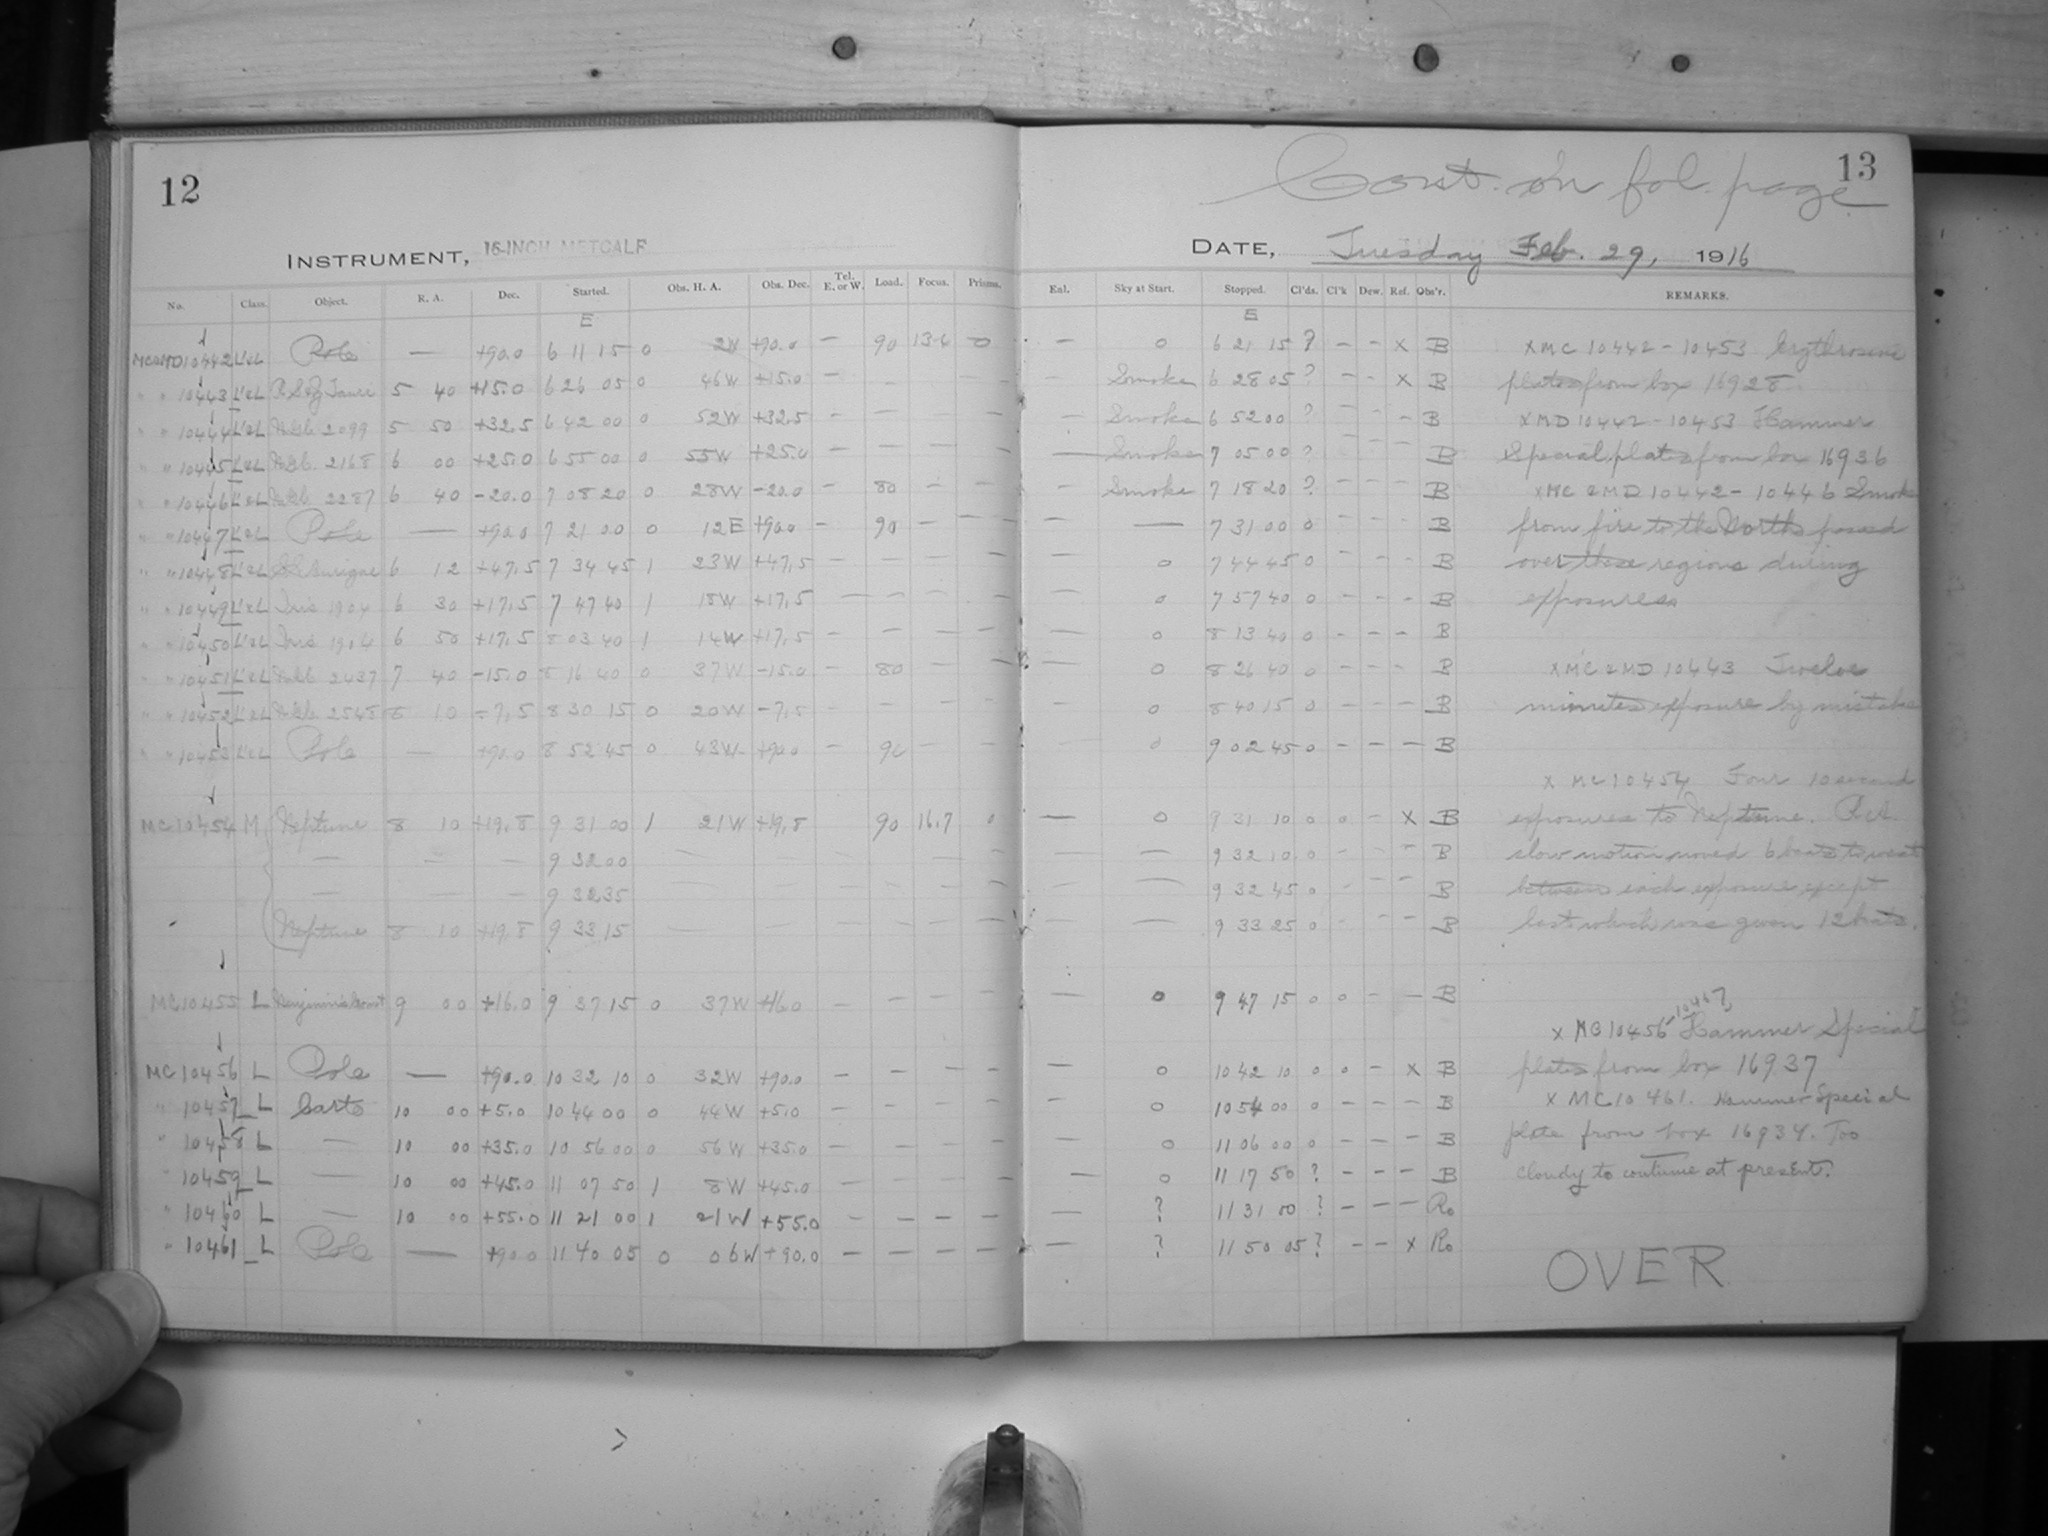 12
INSTRUMENT, 16-INCH METCALF
No. Class. Object. R. A. Dec. Started. Obs. H. A. Obs. Dec. Tel. E. or W. Load. Focus. Prisms.
E
MC&MD 10442 L'&L Pole — +90.0 6 11 15 0 2W +90.0 — 90 13.6 0
" " 10443 L'&L 5 40 +15.0 6 26 05 0 46W +15.0 —
" " 10444 L'&L 2099 5 50 +32.5 6 42 00 0 52W +32.5 — — — —
" " 10445 L'&L 2168 6 00 +25.0 6 55 00 0 55W +25.0 — — — —
" " 10446 L'&L 2287 6 40 -20.0 7 08 20 0 28W -20.0 — 80 — —
" " 10447 L'&L Pole — +90.0 7 21 00 0 12E +90.0 — 90 — —
" " 10448 L'&L Aurigae 6 12 +47.5 7 34 45 1 23W +47.5 —
" " 10449 L'&L Iris 1904 6 30 +17.5 7 47 40 1 18W +17.5 — — — —
" " 10450 L'&L Iris 1904 6 50 +17.5 8 03 40 1 14W +17.5 — — — —
" " 10451 L'&L 2437 7 40 -15.0 8 16 40 0 37W -15.0 — 80 — —
" " 10452 L'&L 2548 8 10 -7.5 8 30 15 0 20W -7.5 — — — —
" " 10453 L'&L Pole — +90.0 8 52 45 0 43W +90.0 — 90 — —
MC 10454 M Neptune 8 10 +19.8 9 31 00 1 21W +19.8 90 16.7 0
— — — 9 32 00 — — — — — —
— — — 9 32 35 — — — — — —
Neptune 8 10 +19.8 9 33 15 — — — — — —
MC 10455 L 9 00 +16.0 9 37 15 0 37W +16.0 — — — —
MC 10456 L Pole — +90.0 10 32 10 0 32W +90.0 — — — —
" 10457 L Carte 10 00 +5.0 10 44 00 0 44W +5.0 — — — —
" 10458 L — 10 00 +35.0 10 56 00 0 56W +35.0 — — — —
" 10459 L — 10 00 +45.0 11 07 50 1 8W +45.0 — — — —
" 10460 L — 10 00 +55.0 11 21 00 1 21W +55.0 — — — —
" 10461 L Pole — +90.0 11 40 05 0 06W +90.0 — — — —
13
Cont. on fol. page
DATE, Tuesday Feb. 29, 1916
Eal. Sky at Start. Stopped. Cl'ds. Cl'k Dew. Ref. Obs'r. REMARKS.
E
— 0 6 21 15 ? — — x B xMC 10442 - 10453 Erythrosine
— Smoke 6 28 05 ? — — x B plates from box 16928.
— Smoke 6 52 00 ? — — — B xMD 10442 - 10453 Hammer
— Smoke 7 05 00 ? — — — B Special plates from box 16936
— Smoke 7 18 20 ? — — — B xMC & MD 10442 - 10446 Smoke
— — 7 31 00 0 — — — B from fire to the North passed
— 0 7 44 45 0 — — — B over these regions during
— 0 7 57 40 0 — — — B exposures
— 0 8 13 40 0 — — — B
— 0 8 26 40 0 — — — B xMC & MD 10443 Twelve
— 0 8 40 15 0 — — — B minutes exposure by mistake
— 0 9 02 45 0 — — — B
x MC 10454 Four 10 second
— 0 9 31 10 0 0 — x B exposures to Neptune.
— — 9 32 10 0 — — — B slow motion moved 6 beats to west
— — 9 32 45 0 — — — B between each exposure except
— — 9 33 25 0 — — — B last which was given 12 beats.
— 0 9 47 15 0 0 — — B
x MC 10456 - 10467, Hammer Special
— 0 10 42 10 0 0 — x B plates from box 16937
— 0 10 54 00 0 — — — B x MC 10461. Hammer Special
— 0 11 06 00 0 — — — B plate from box 16934. Too
— 0 11 17 50 ? — — — B cloudy to continue at present.
— ? 11 31 00 ? — — — Ro
— ? 11 50 05 ? — — x Ro
OVER